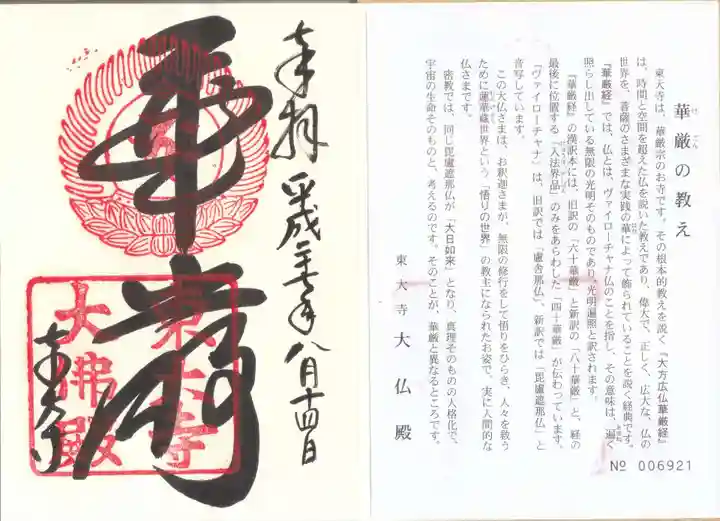 華厳の教え
東大寺は、華厳宗のお寺です。その根本的教えを説く『大方広仏華厳経』
は、時間と空間を超えた仏を説いた教えであり、偉大で、正しく、広大な、仏の
世界を、菩薩のさまざまな実践の華によって飾られていることを説く経典です。
『華厳経』では、仏とは、ヴァイローチャナ仏のことを指し、その意味は、遍く
照らし出している無限の光明そのものであり、光明遍照と訳されます。
『華厳経』の漢訳本には、旧訳の「六十華厳」と新訳の「八十華厳」と、経の
最後に位置する『入法界品』のみをあらわした「四十華厳」が伝わっています。
「ヴァイローチャナ」は、旧訳では「盧舎那仏」、新訳では「毘盧遮那仏」と
音写しています。
この大仏さまは、お釈迦さまが、無限の修行をして悟りをひらき、人々を救う
ために蓮華蔵世界という「悟りの世界」の教主になられたお姿で、実に人間的な
仏さまです。
密教では、同じ毘盧遮那仏が「大日如来」となり、真理そのものの人格化で、
宇宙の生命そのものと、考えるのです。そのことが、華厳と異なるところです。
東大寺 大仏殿
№ 006921
奉拝 平成二十七年八月十四日
華厳
東大寺
大佛殿
東大寺